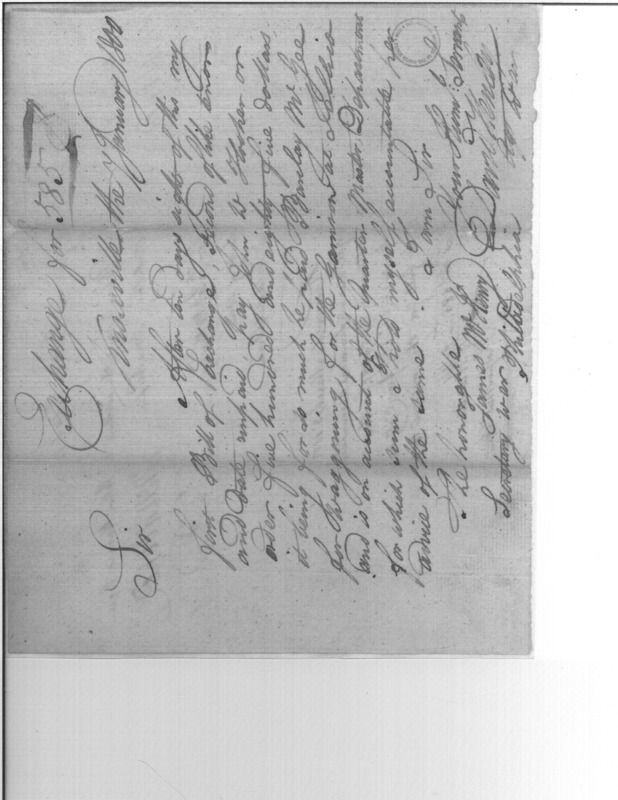 Exchange for 585 $
Knoxville the 7 January 1800
Sir
After ten days sight of this my
first Bill of Exchange, second of the tenor
and date unpaid pay John W Hooker or
order five hundred and eighty five dollars
it being for so much he paid Barclay McGee
for waggoning for the Garrison at Tellico
and is on account of the Quarter Master Department
for which sum I hold myself accountable per
advice of the same. I am Sir
The honorable Your Hum. Servant
James McHenry David Henley
Secretary war
Philadelphia